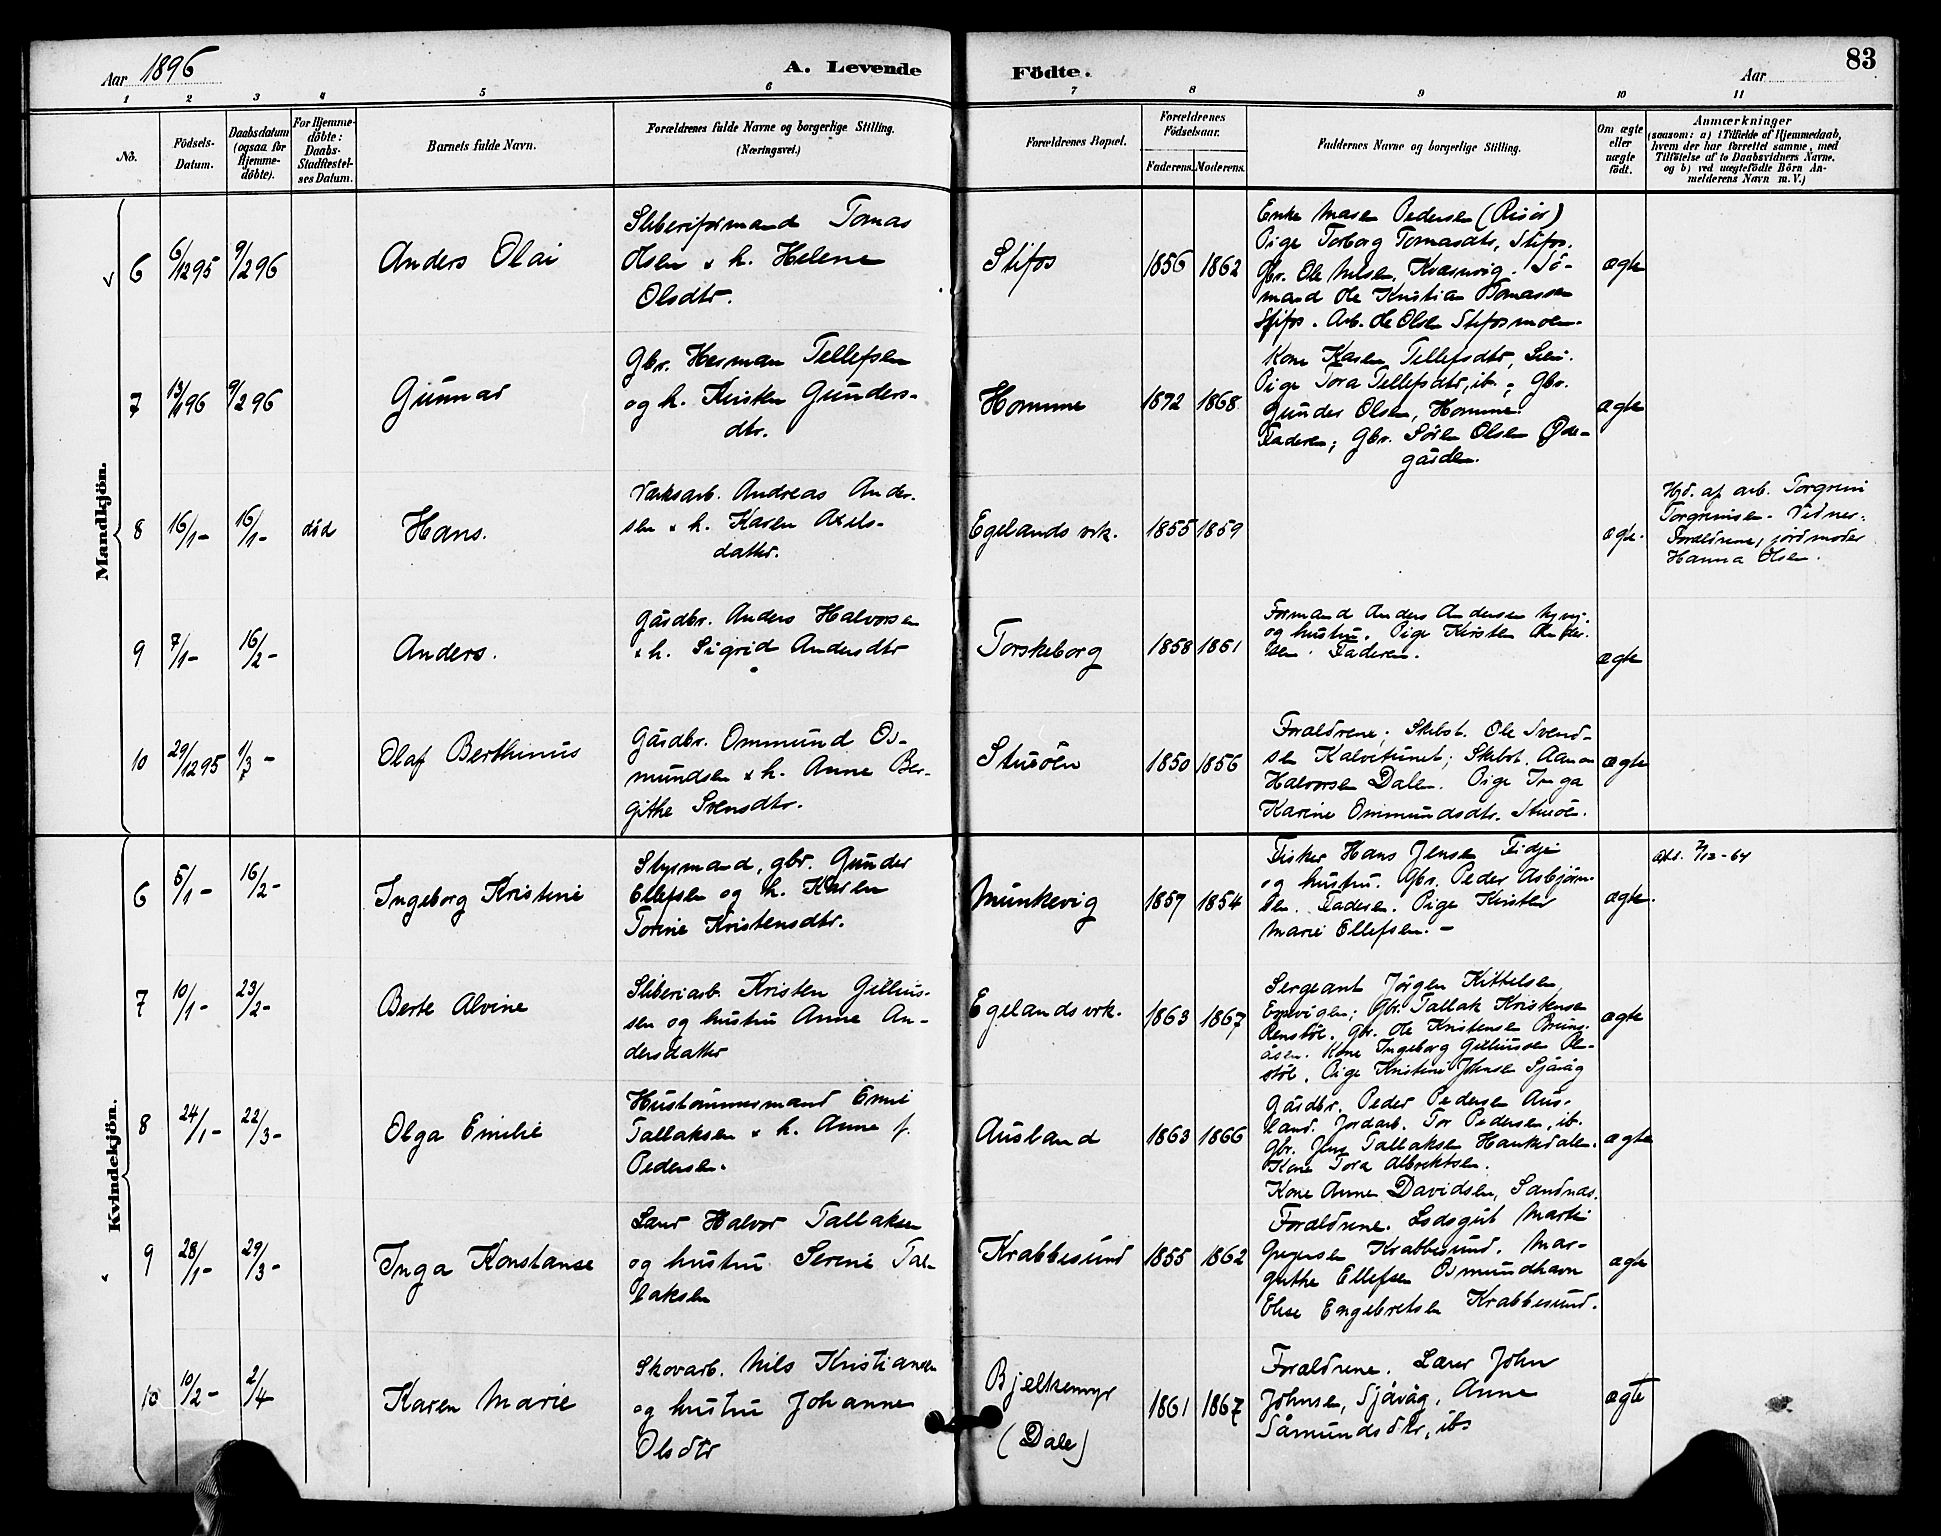 Aar 1896
A. Levende
Födte.
Aar
83
1 2 3 4 5 6 7 8 9 10 11
No.
Födsels-Datum.
Daabsdatum (ogsaa for Hjemme-döbte).
For Hjemme-döbte: Daabs-Stadfæstel-ses Datum.
Barnets fulde Navn.
Forældrenes fulde Navne og borgerlige Stilling.
(Næringsvei.)
Forældrenes Bopæl.
Forældrenes Födselsaar.
Faderens. Moderens.
Faddernes Navne og borgerlige Stilling.
Om ægte eller uægte födt.
Anmærkninger
(saasom: a) i Tilfælde af Hjemmedaab,
hvem der har forrettet samme, med
Tilföielse af to Daabsvidners Navne.
og b) ved uægtefödte Börn An-
melderens Navn m. V.)
Mandkjön.
6 6/12 95 9/2 96 Anders Olai
Sliberiformand Tomas
Olsen & h. Helene
Olsdtr.
Stifos 1856 1862
Enke Maren Pedersen (Risör)
Pige Torborg Tomasdtr, Stifos.
Gbr. Ole Nilsen, Kvasnvig. Sö-
mand Ole Kristian Tomassen
Stifos. Arb. Ole Olsen Stifosmoen.
ægte
7 13/1 96 9/2 96 Gunnar
Gbr. Herman Tellefsen
og h. Kirsten Gunders-
dtr.
Homme 1872 1868
Kone Karen Tellefsdtr,
Pige Tora Tellefsdtr, ib.; Gbr.
Gunder Olsen, Homme.
Faderen; Gbr. Sören Olsen Öde-
gården.
ægte
8 16/1 - 16/1 - död Hans.
Værksarb. Andreas Ander-
sen & h. Karen Axels-
datter.
Egelands vrk. 1855 1859
ægte.
Hjd. af arb. Torgrim
Torgrimsen. Vidner:
Forældrene, jordmoder
Hanna Olsen.
9 7/1 - 16/2 - Anders.
Gårdbr. Anders Halvorsen
& h. Sigrid Andersdtr
Torskeborg 1858 1861
Formand Anders Andersen
og hustru. Pige Kirsten Ander-
sen. Faderen.
ægte
10 29/12 95 1/3 - Olaf Berthinius
Gårdbr. Ommund Os-
mundsen & h. Anne Ber-
githe Svensdtr.
Stusöen 1850 1856
Forældrene; Skibst. Ole Svend-
sen Kalvitunet; Skibst. Aanon
Halvorsen Dalen. Pige Inga
Karine Ommundsdtr. Stusöen.
ægte
Kvindekjön.
6 5/1 - 16/2 - Ingeborg Kristine
Styrmand, gbr. Gunder
Ellefsen og h. Karen
Torine Kristensdtr.
Munkevig 1857 1854
Fisker Hans Jensen Fidje
og hustru. Gbr. Peder Asbjörn-
sen. Faderen. Pige Kirsten
Marie Ellefsen. -
ægte.
7/12-64
7 10/1 - 23/2 - Berte Alvine
Sliberiarb. Kristen Gjelius-
sen og hustru Anne An-
dersdatter
Egelands vrk. 1863 1867
Sergeant Jörgen Kittelsen,
; Gbr. Tallak Kristensen
Renstöl. Gbr. Ole Kristensen Bruns-
åsen. Kone Ingeborg Gjeliussen Ole-
stöl. Pige Kristine Johnsen Sjåvåg
ægte
8 24/1 - 22/3 - Olga Emilie
Hustømmesmand Emil
Tallaksen & h. Anne f.
Pedersen.
Ausland 1863 1866
Gårdbr. Peder Pedersen Aus-
land. Jordarb. Tor Pedersen, ib.
Gbr. Jens Tallaksen Haukedalen.
Kone Tora Albrektsen.
Kone Anne Davidsen, Sandnes.
ægte
9 28/1 - 29/3 - Inga Konstanse
Lærer Halvor Tallaksen
og hustru Serine Tal-
laksen
Krabbesund 1855 1862
Forældrene. Lodsgut Martin
Gregersen Krabbesund. Mar-
grethe Ellefsen Osmundhavn
Elise Engebretsen Krabbesund.
ægte
10 10/2 - 2/4 Karen Marie
Skovarb. Nils Kristiansen
og hustru Johanne
Olsdtr
Bjelkemyr
(Dale)
1861 1867
Forældrene. Lærer John
Johnsen, Sjåvåg, Anne
Såmundsdtr, ibs
ægte